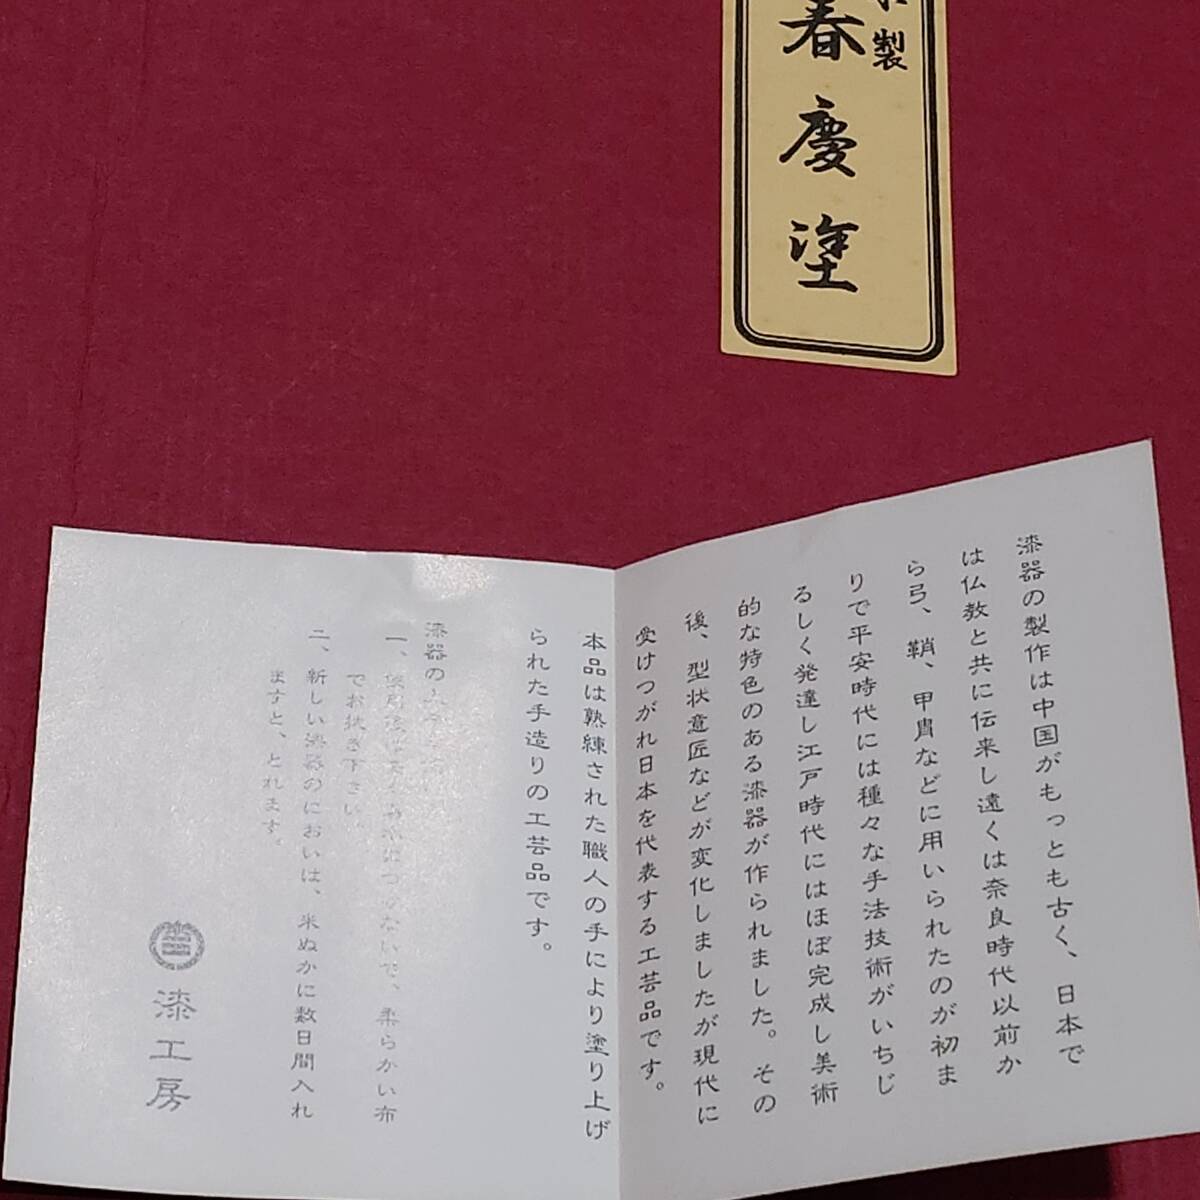 製
春慶塗
漆器の製作は中国がもっとも古く、日本で
は仏教と共に伝来し遠くは奈良時代以前か
ら弓、鞘、甲冑などに用いられたのが初ま
りで平安時代には種々な手法技術がいちじ
るしく発達し江戸時代にはほぼ完成し美術
的な特色のある漆器が作られました。その
後、型状意匠などが変化しましたが現代に
受けつがれ日本を代表する工芸品です。
本品は熟練された職人の手により塗り上げ
られた手造りの工芸品です。
漆器の
一、使用後は つけないで、柔らかい布
でお拭き下さい。
二、新しい漆器のにおいは、米ぬかに数日間入れ
ますと、とれます。
漆工房